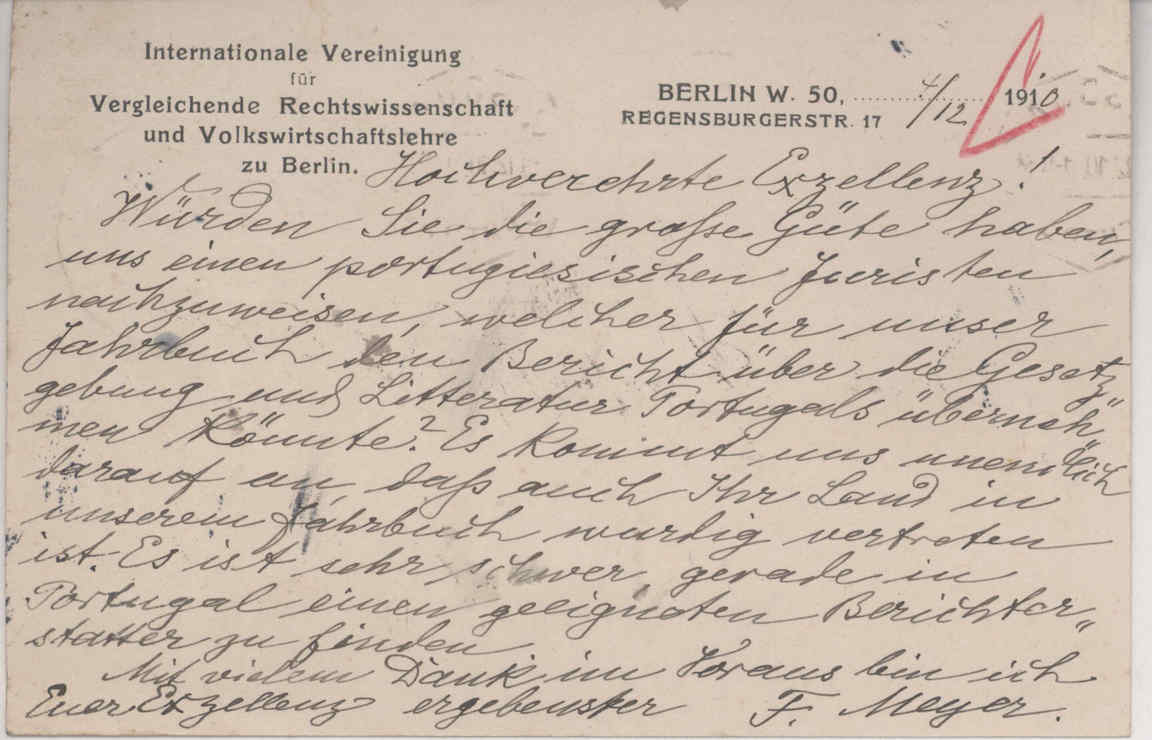 Internationale Vereinigung
für
Vergleichende Rechtswissenschaft
und Volkswirtschaftslehre
zu Berlin.
BERLIN W. 50, 4/12 1910
REGENSBURGERSTR. 17
Hochverehrte Exzellenz!
Würden Sie die große Güte haben,
uns einen portugiesischen Juristen
nachzuweisen, welcher für unser
Jahrbuch den Bericht über die Gesetz"
gebung und Litteratur Portugals überneh"
men könnte? Es kommt uns unendlich
darauf an, daß auch Ihr Land in
unserem Jahrbuch würdig vertreten
ist. Es ist sehr schwer, gerade in
Portugal einen geeigneten Berichter"
statter zu finden.
Mit vielem Dank im Voraus bin ich
Euer Exzellenz ergebenster F. Meyer.